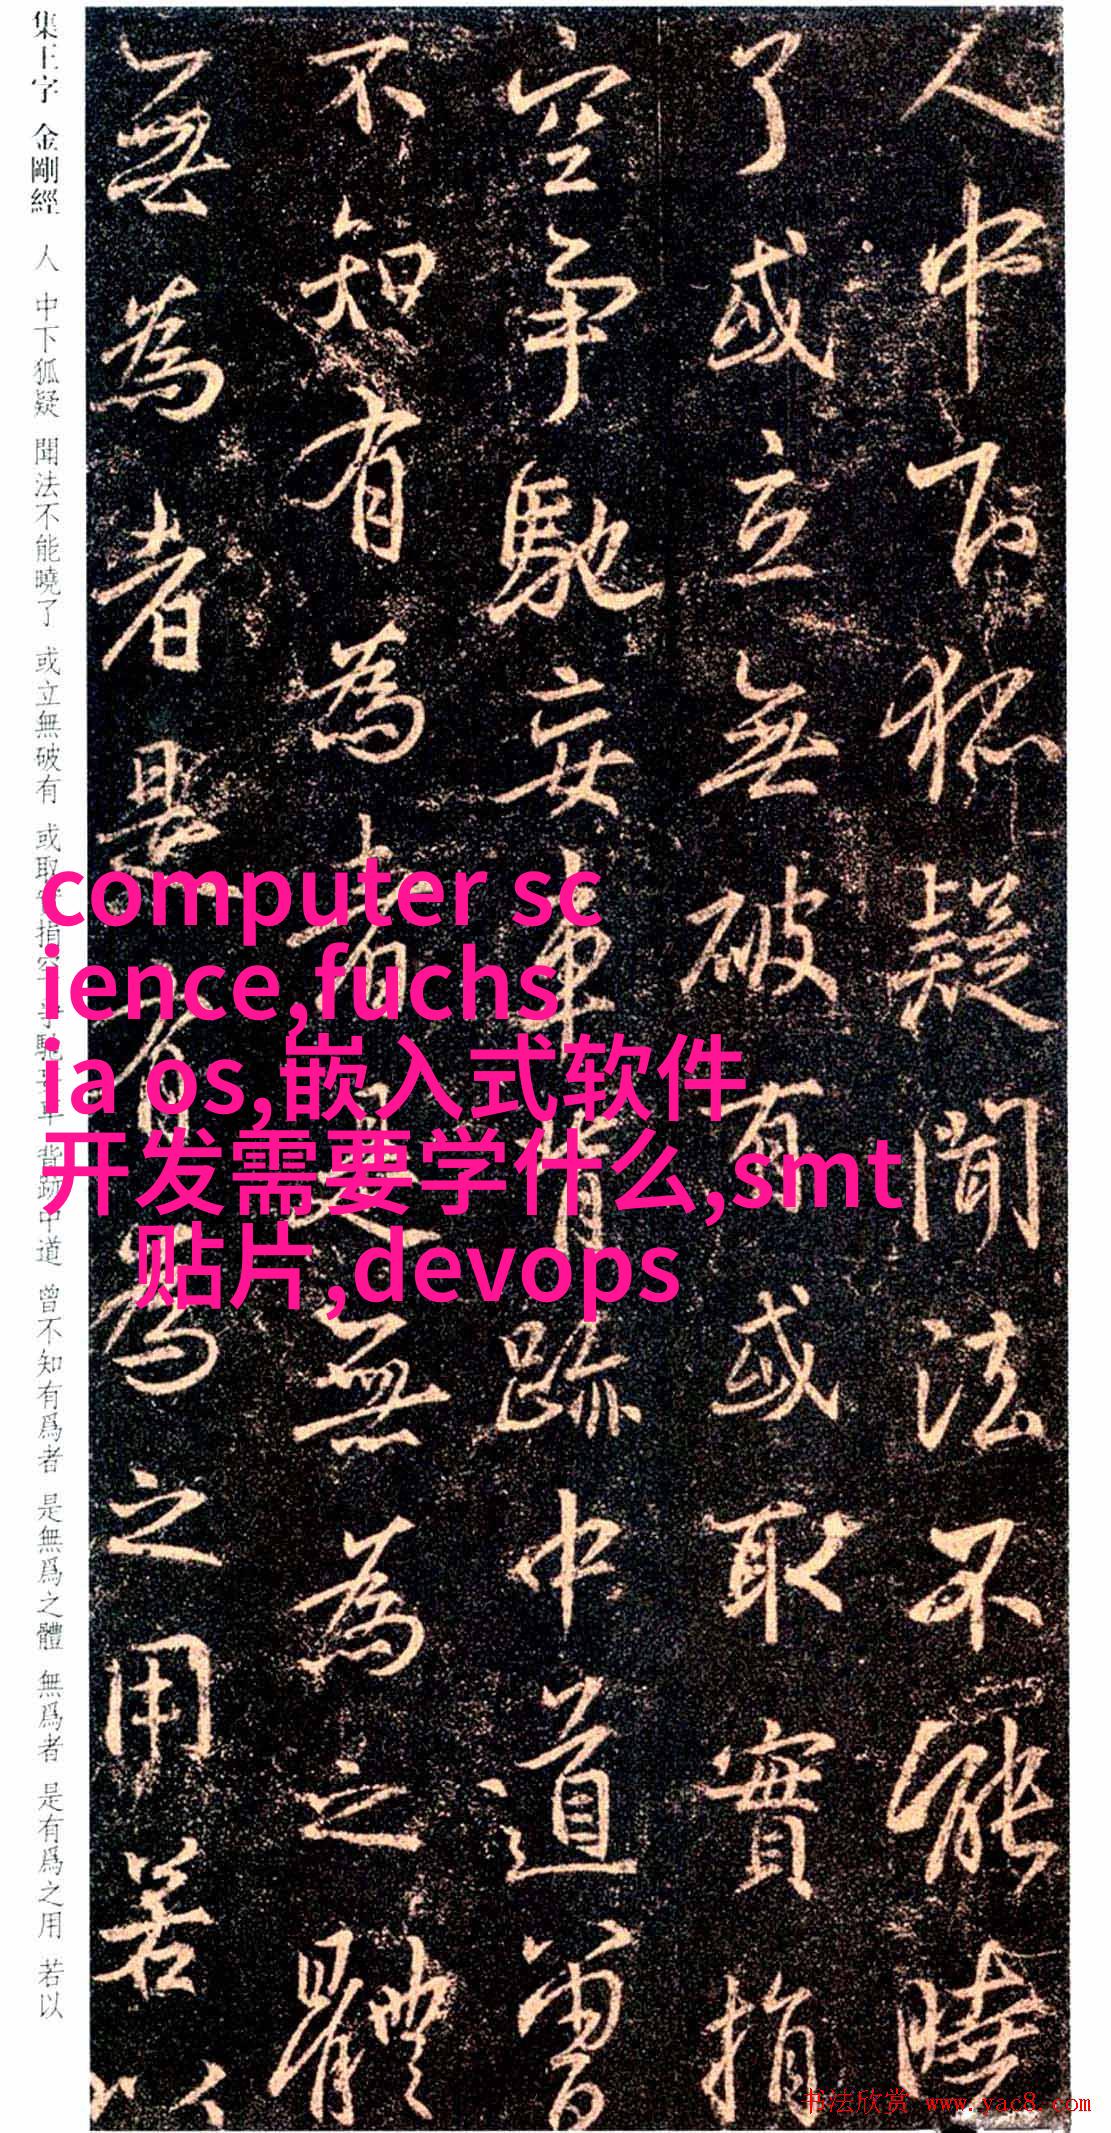 人中下狐疑聞法不能曉
了或立無破有或取實捐
空争馳妄車背跡中道曾
不知有為者是無為之體
無為者是有為之用若以
集王字 金剛經 人 中下狐疑 聞法不能曉了 或立無破有 或取實捐空 爭馳妄車 背跡中道 曾不知有爲者 是無爲之體 無爲者 是有爲之用 若以
computer sc
ience,fuchs
ia os,嵌入式软件
开发需要学什么,smt
贴片,devops
书法欣赏 www.yac8.com